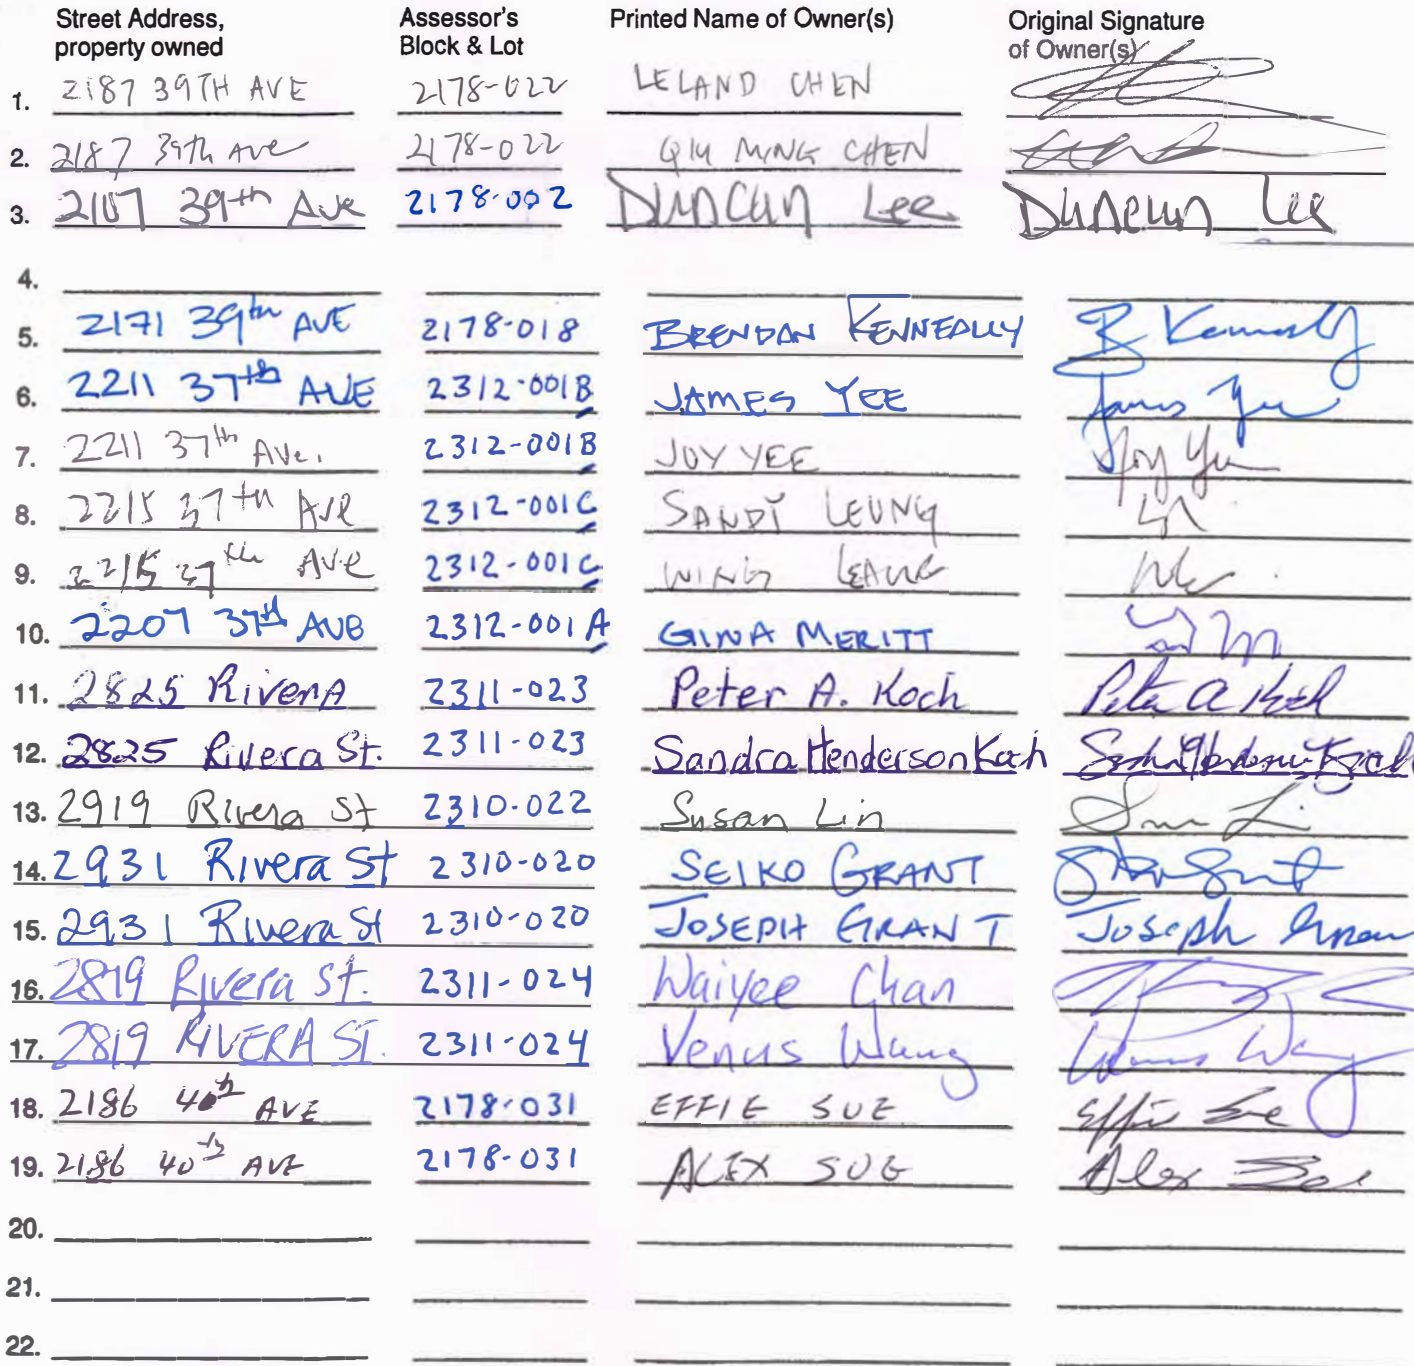 Street Address, Assessor's Printed Name of Owner(s) Original Signature
property owned Block & Lot of Owner(s)
1. 2187 39TH AVE 2178-022 LELAND CHEN
2. 2187 39th Ave 2178-022 QIU MING CHEN
3. 2107 39th Ave 2178-002 Duncan Lee Duncan Lee
4.
5. 2171 39th AVE 2178-018 BRENDAN KENNEALLY B Kenneally
6. 2211 37th AVE 2312-001B JAMES YEE James Yee
7. 2211 37th Ave. 2312-001B JOY YEE Joy Yee
8. 2215 37th Ave 2312-001C SANDI LEUNG
9. 2215 37th Ave 2312-001C WING LEUNG
10. 2207 37th AVE 2312-001A GINA MERITT
11. 2825 Rivera 2311-023 Peter A. Koch Peter A Koch
12. 2825 Rivera St. 2311-023 Sandra Henderson Koch Sandra Henderson Koch
13. 2919 Rivera St 2310-022 Susan Lin
14. 2931 Rivera St 2310-020 SEIKO GRANT
15. 2931 Rivera St 2310-020 JOSEPH GRANT Joseph Grant
16. 2819 Rivera St. 2311-024 Waiyee Chan
17. 2819 RIVERA ST. 2311-024 Venus Wang Venus Wang
18. 2186 40th AVE 2178-031 EFFIE SUE Effie Sue
19. 2186 40th AVE 2178-031 ALEX SUE Alex Sue
20.
21.
22.